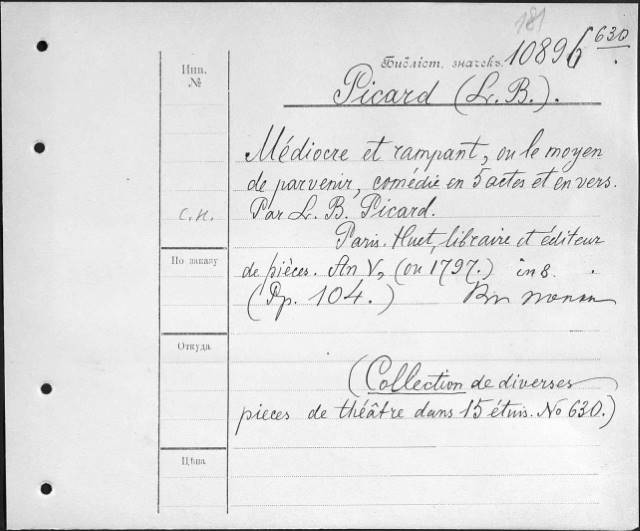 181
Библіот. значекъ. 10896 630
Инв.
№
Picard (L. B.).
Médiocre et rampant, ou le moyen
de parvenir, comédie en 5 actes et en vers.
с.н. Par L. B. Picard.
Paris. Huet, libraire et éditeur
По заказу
de pièces. An V, (ou 1797.) in 8.
(Pp. 104.)
Откуда
(Collection de diverses
pieces de théâtre dans 15 étuis. No 630.)
Цѣна